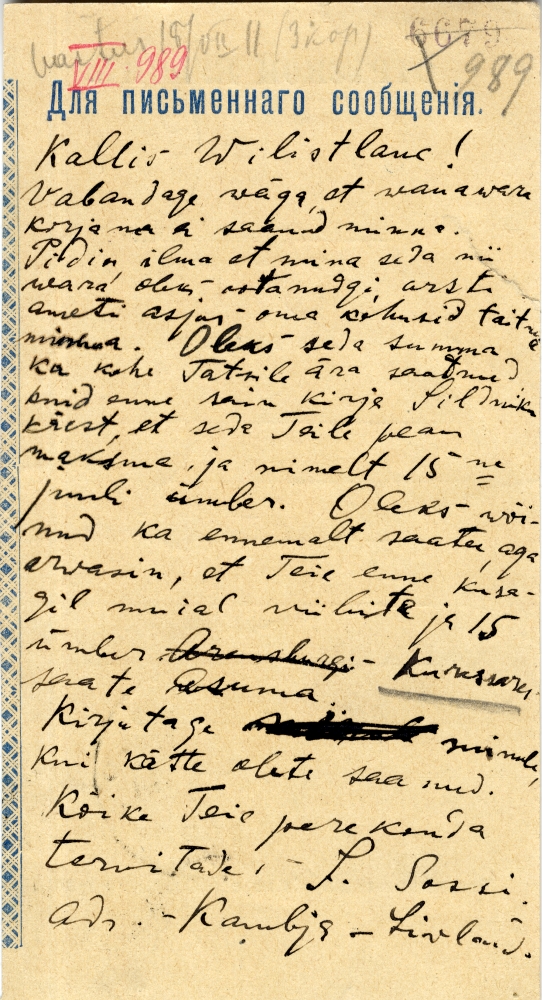 vastus 18/VII 11 (3 kop)
6679
VIII 989
989
Для письменнаго сообщенія.
Kallis Wilistlane!
Vabandage wäga, et wanawara
korjama ei saanud minna.
Pidin ilma et mina seda nii
wara oleks votanudgi, arsti
ameti asjus oma kohusid täitma
minema. Oleks seda summa
ka kohe Tatsile ära saatnud
kuid enne sain kirja Sildniku
käest, et seda Teile pean
maksma, ja nimelt 15 ne
juuli ümber. Oleks wõi-
nud ka ennemalt saata, aga
arvasin, et Teie enne kusa-
gil muial viibite ja 15
ümber Arensburgi - Kuressare
saate asuma.
Kirjutage minule,
kui kätte olete saanud.
Kõike Teie perekonda
tervitades
Sossi.
Adr. - Kambja - Livländ.